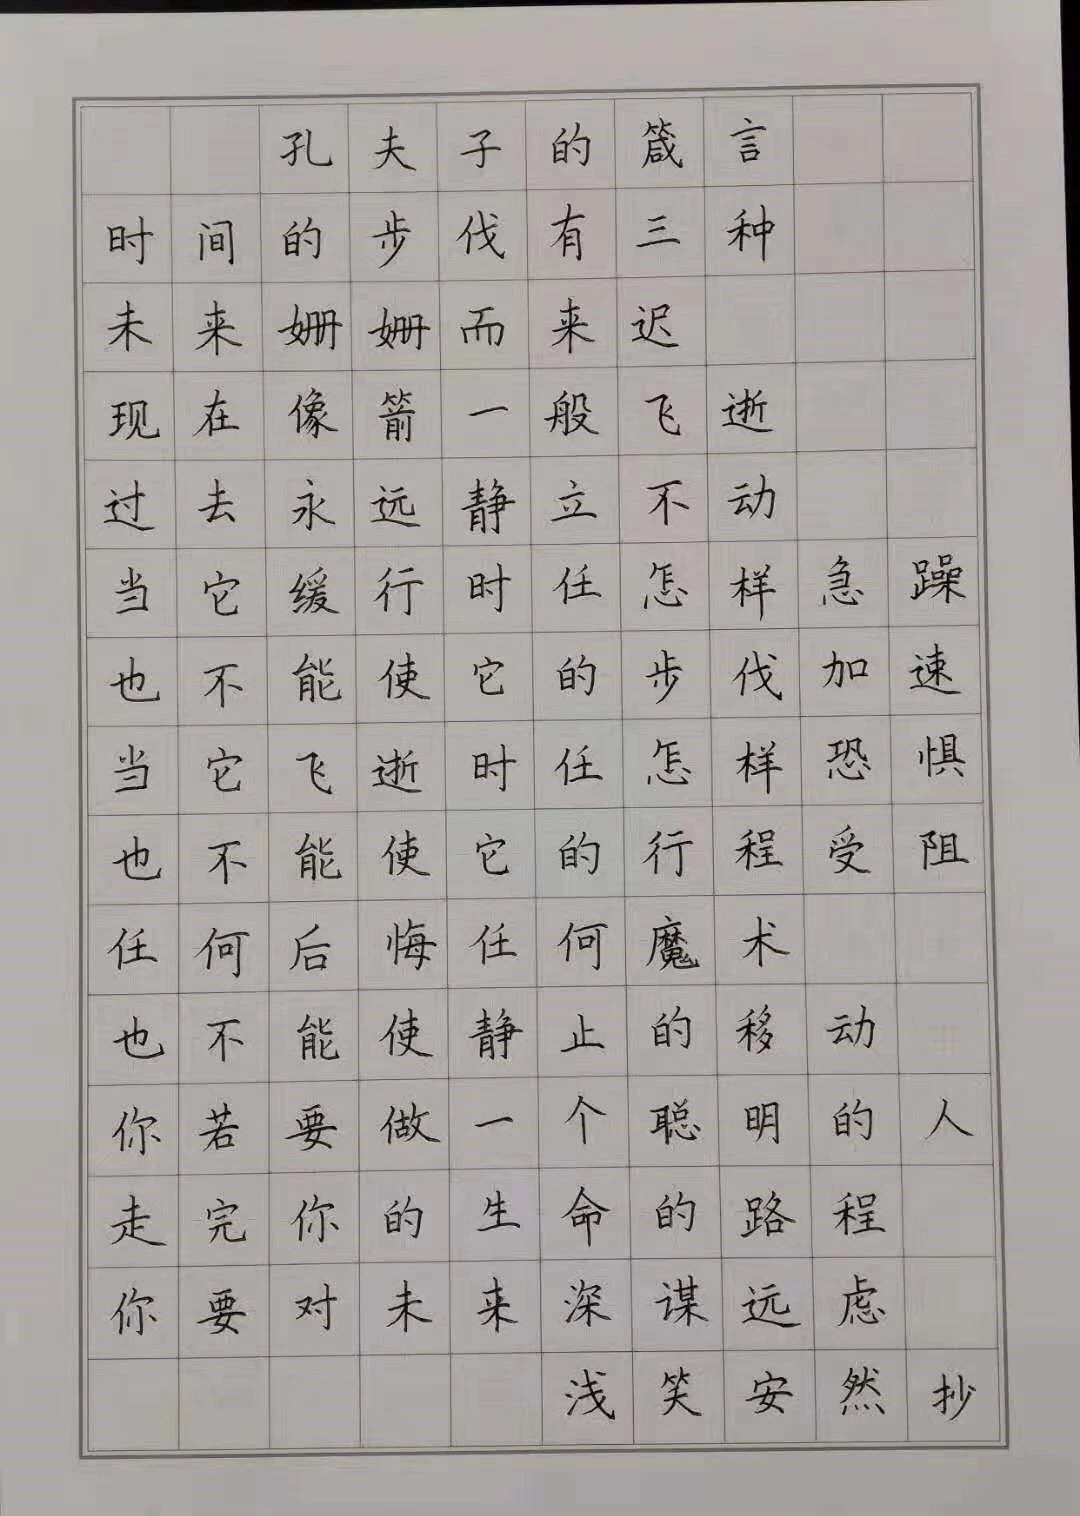 孔夫子的箴言
时间的步伐有三种
未来姗姗而来迟
现在像箭一般飞逝
过去永远静立不动
当它缓行时任怎样急躁
也不能使它的步伐加速
当它飞逝时任怎样恐惧
也不能使它的行程受阻
任何后悔任何魔术
也不能使静止的移动
你若要做一个聪明的人
走完你的生命的路程
你要对未来深谋远虑
浅笑安然抄